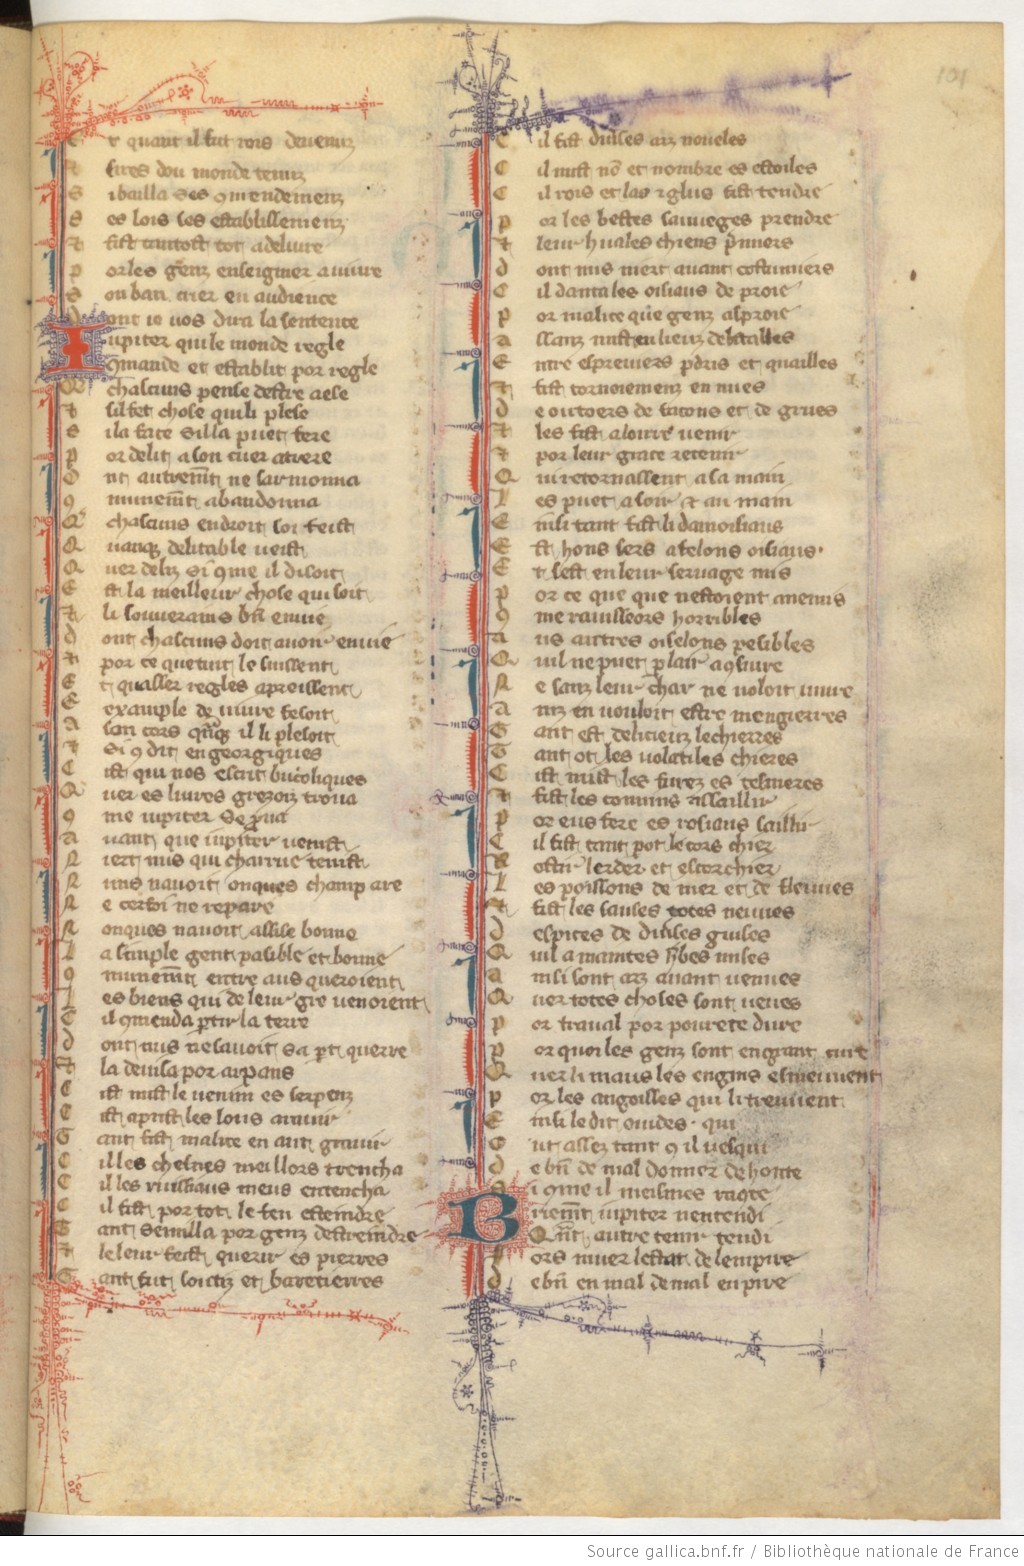 101
Et quant il fut rois devenuz
Sires dou monde tenuz
Si bailla ses ꝯmendemenz
Ses lois ses establissemenz
Et fist tantost tot a delivre
Por les genz enseignier a vivre
Son ban crier en audience
Dont ie vos dira la sentence
Iupiter qui le monde regle
ꝯmande et establit por regle
Q̃ chascuns pense destre aese
Et sil set chose qui li plese
Sila face silla puet fere
Por delit a son cuer atrere
Onc autrem̃t ne sarmonna
ꝯmunem̃t abandonna
Q̃ chascuns endroit soi feist
Quanq̃ delitable veist
Quer deliz si ꝯme il disoit
Est la meilleur chose qui soit
Et li souverains bñ en vie
Dont chascuns doit avoir envie
Et por ce que tuit le suissent
Et qua ses regles apreissent
Example de vivre fesoit
A son cors quãq̃ il li plesoit
Et si ꝯ dit en georgiques
Cist qui nos escrit bucoliques
Quer es livres grezois trova
ꝯme iupiter se prova
Avant que iupiter venist
Niert nus qui charrue tenist
Nuns navoit onques champ are
Ne cerfoi ne repare
Nonques navoit assise bonne
La simple gent pasible et bonne
ꝯmunem̃t entre aus queroient
Les biens qui de leur gre venoient
Cil ꝯmenda partir la terre
Dont nus ne savoit sa part querre
Et la devisa por arpans
Cist mist le venim es serpenz
Cist aprist les lous a ravir
Tant fist malice en aut gravir
Cil les chesnes meillors trencha
Cil les ruissiaus meus entencha
Cil fist por tot le feu esteindre
Tant semilla por genz destreindre
Et le leur fist querir es pierres
Tant fut soictiz et baretierres
Cil fist diverses arz noveles
Cil mist nõ et nombre es estoiles
Cil rois et las et glus fist tendre
Por les bestes sauveges prendre
Et leur huales chiens p̃miers
Dont nus niert avant costumiers
Cil danta les oisiaus de proie
Por malice que genz asproie
Assauz mist en lieuz de batailles
Entre espreviers pdris et quailles
Et fist tornoiemenz en nues
De outoers de facons et de grues
Et les fist a loirre venir
Et por leur grace retenir
Qui retornassent a sa main
Les puet a soir et au main
Einsi tant fist li damoisiaus
Est hons sers a felons oisiaus
Et sest en leur servage mis
Por ce que que nestoient anemis
ꝯme ravisseors horribles
Aus autres oiselons pesibles
Quil ne puet p lair aꝯsivre
Ne sanz leur char ne voloit vivre
Ainz en vouloit estre mengierres
Tant est delicieuz lechierres
Tant ot les volatiles chieres
Cist mist les furez es tesnieres
Et fist les connins assaillir
Por eus fere es rosiaus saillir
Cil fist tant pot le cors chier
Rostir lerder et escorchier
Les poissons de mer et de fleuves
Et fist les sauses totes neuves
Despices de diverses guises
Quil a maintes h̾bes mises
Ainsi sont arz avant venues
Quer totes choses sont veues
Por travail por povrete dure
Por quoi les genz sont en grant cure
Quer li maus les engins esmeuvent
Por les angoisses qui li treuvent
Einsi le dit ovides qui
Out assez tant ꝯ il vesqui
De bñ de mal donner de honte
Si ꝯme il meismes raconte
Briem̃t iupiter nentendi
Quãt autre tenir tendi
Fors muer lestat de lempire
De bñ en mal de mal en pire
Source gallica.bnf.fr / Bibliothèque nationale de France